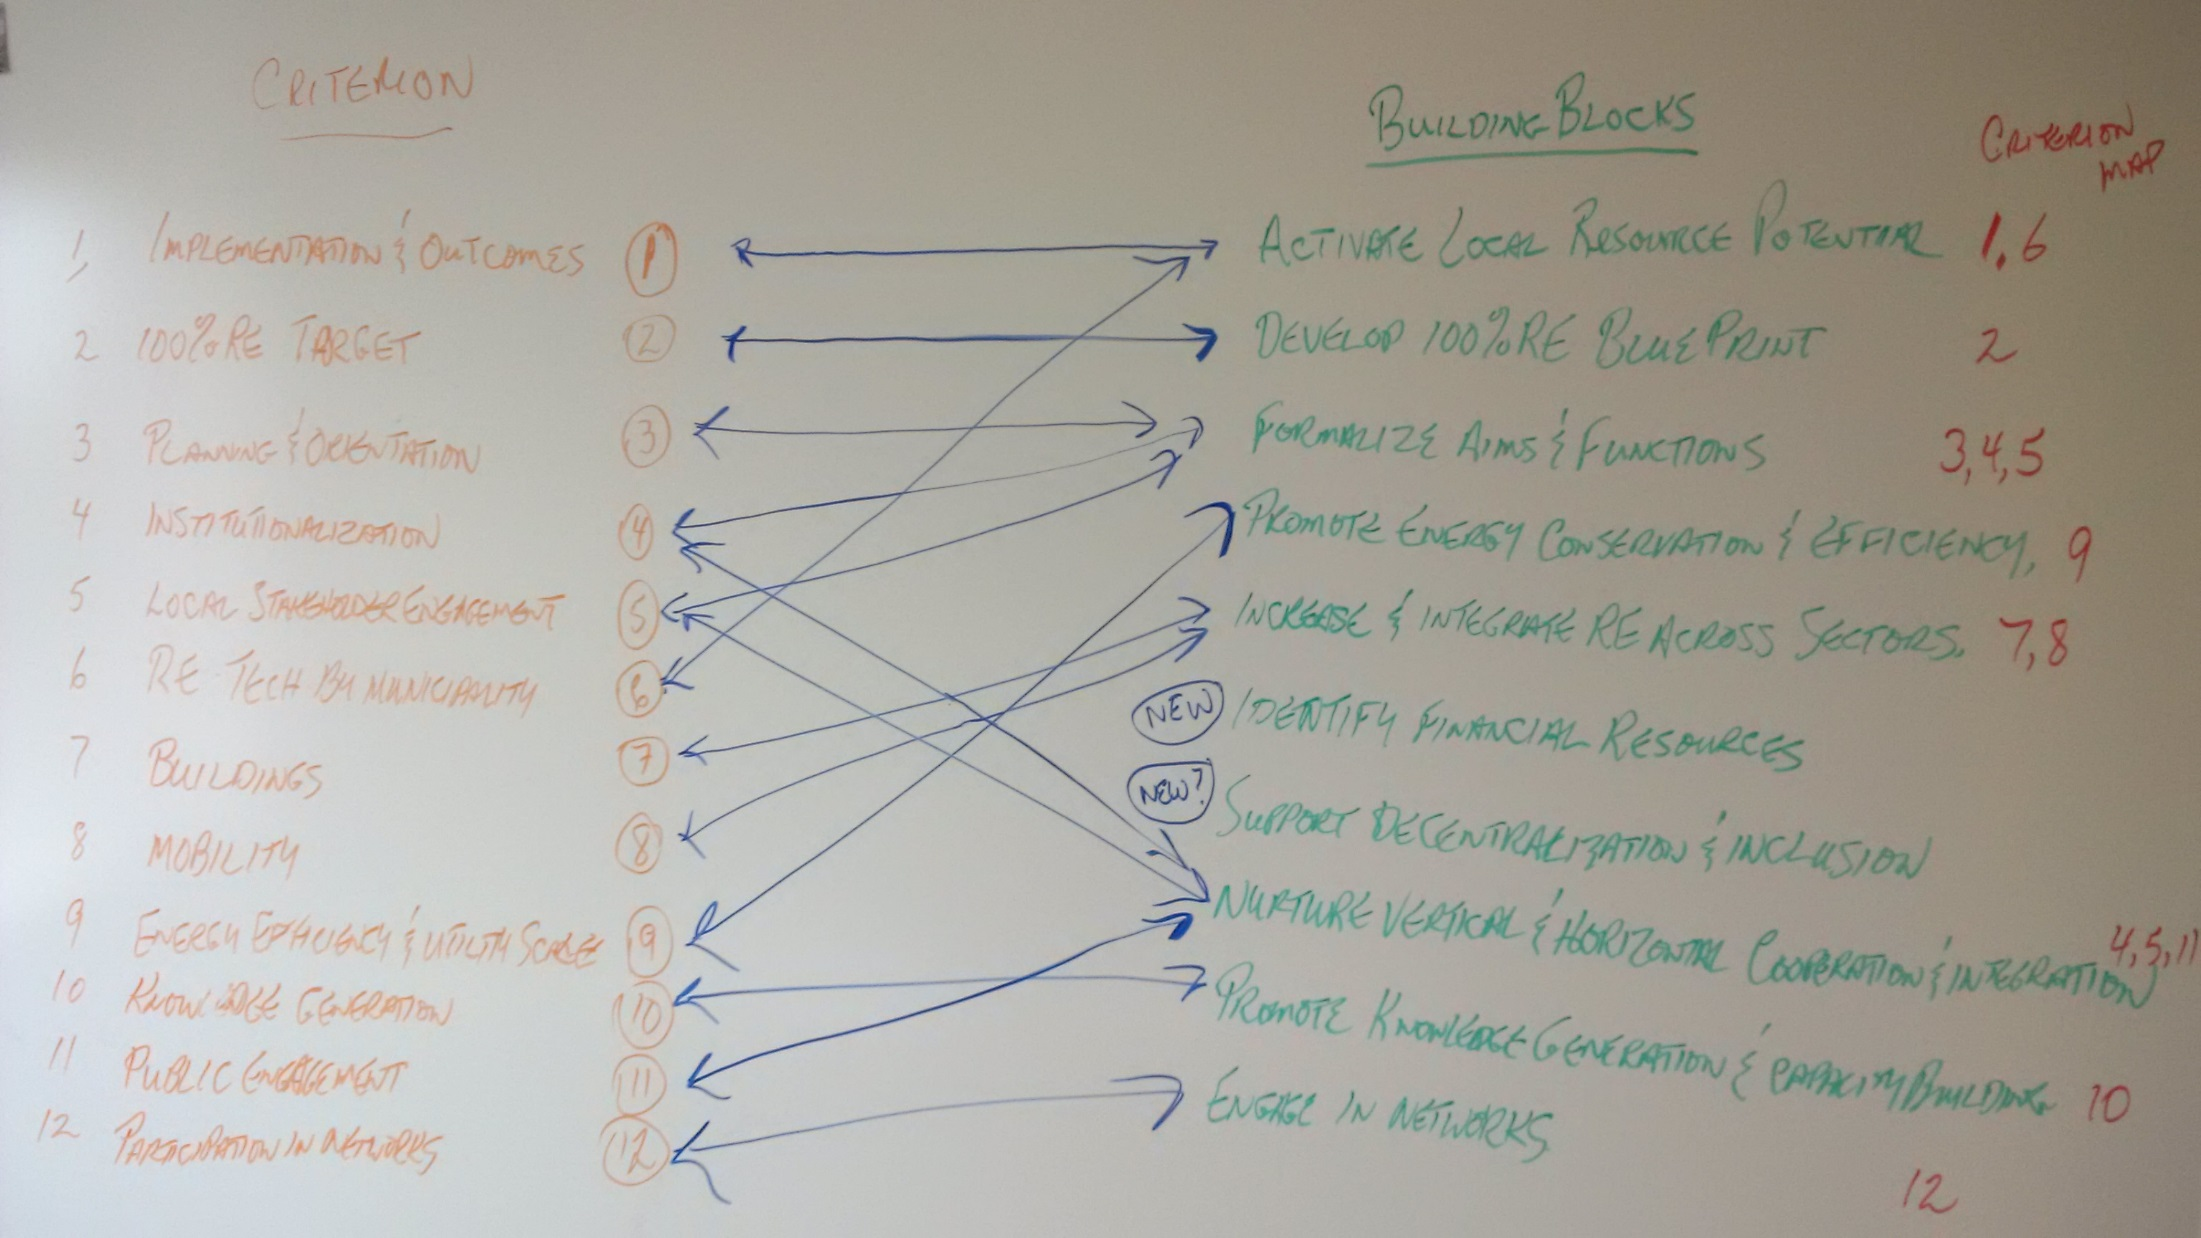 CRITERION
1, IMPLEMENTATION & OUTCOMES 1
2 100% RE TARGET 2
3 PLANNING & ORIENTATION 3
4 INSTITUTIONALIZATION 4
5 LOCAL STAKEHOLDER ENGAGEMENT 5
6 RE TECH BY MUNICIPALITY 6
7 BUILDINGS 7
8 MOBILITY 8
9 ENERGY EFFICIENCY & UTILITY SCALE 9
10 KNOWLEDGE GENERATION 10
11 PUBLIC ENGAGEMENT 11
12 PARTICIPATION IN NETWORKS 12
BUILDING BLOCKS
CRITERION
MAP
ACTIVATE LOCAL RESOURCE POTENTIAL 1,6
DEVELOP 100% RE BLUEPRINT 2
FORMALIZE AIMS & FUNCTIONS 3,4,5
PROMOTE ENERGY CONSERVATION & EFFICIENCY, 9
INCREASE & INTEGRATE RE ACROSS SECTORS. 7,8
NEW IDENTIFY FINANCIAL RESOURCES
NEW? SUPPORT DECENTRALIZATION & INCLUSION
NURTURE VERTICAL & HORIZONTAL COOPERATION & INTEGRATION 4,5,11
PROMOTE KNOWLEDGE GENERATION & CAPACITY BUILDING 10
ENGAGE IN NETWORKS
12